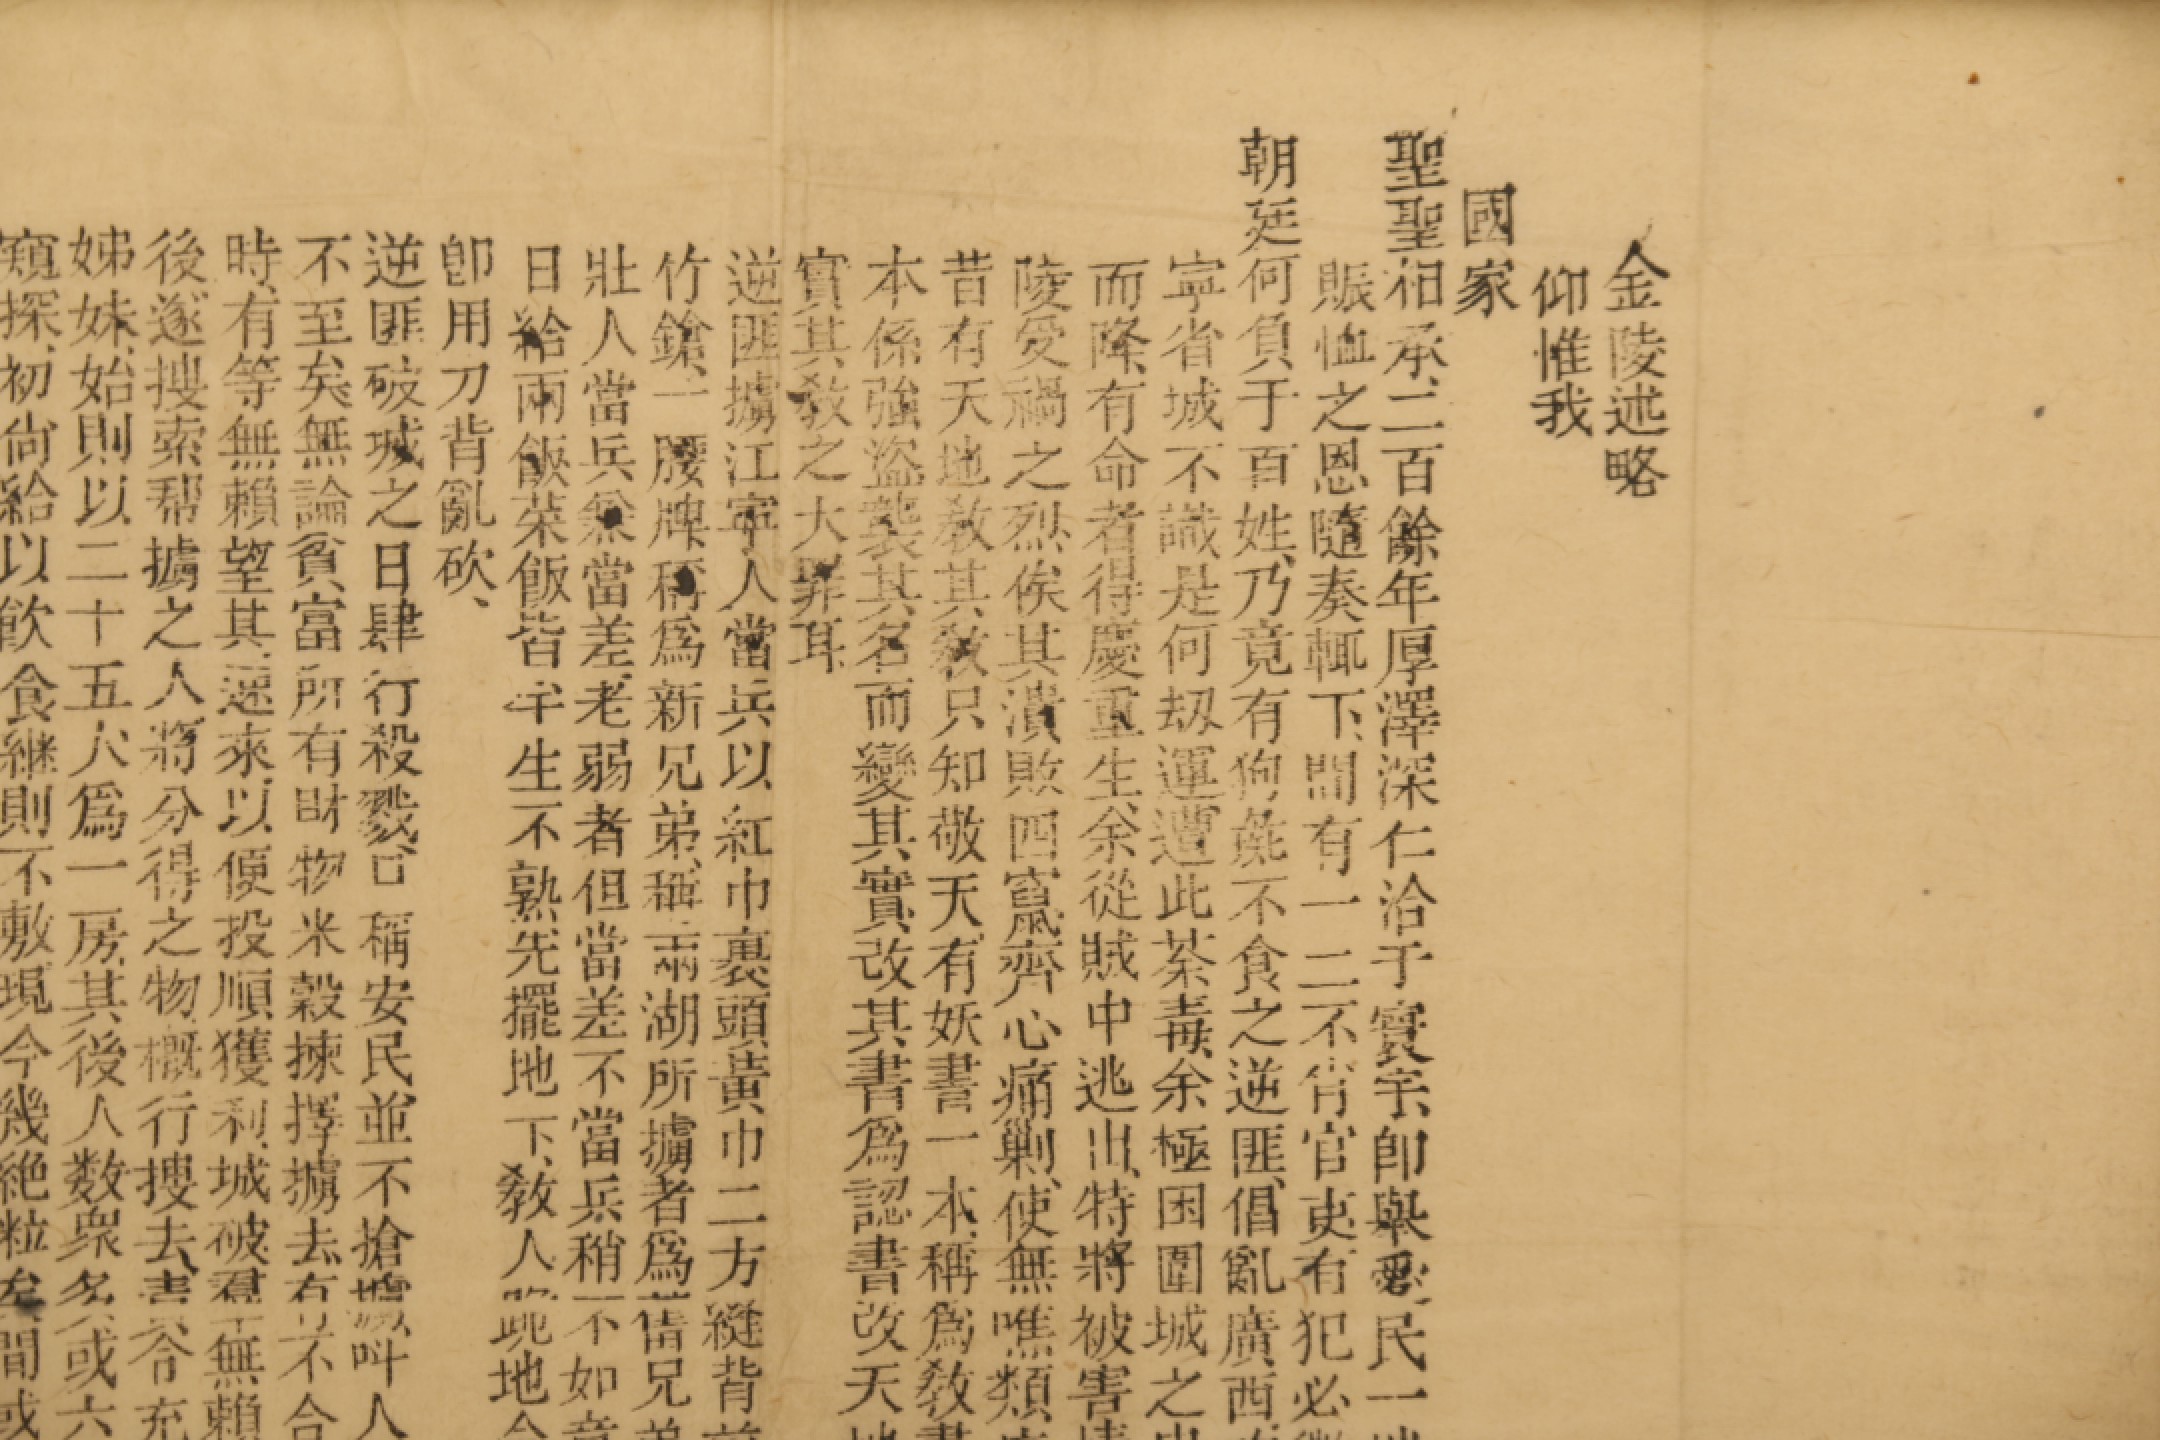 金陵述略
仰惟我
國家
聖聖相承、二百餘年厚澤深仁洽于寰宇、卽舉愛民一
賑恤之恩、隨奏輒下、間有一二不肖官吏有犯必
朝廷何負于百姓、乃竟有狗彘不食之逆匪、倡亂廣西、
寧省城不識是何刼運遭此荼毒、余極困圍城之
而降、有命者得慶重生、余從賊中逃出、特將被害情
陵受禍之烈、俟其潰敗四竄、齊心痛剿、使無噍類、
昔有天地教、其教只知敬天、有妖書一本、稱爲教書
本係強盜、襲其名而變其實、改其書爲認書改天地
實其教之大罪耳
逆匪擄江寧人當兵以紅巾裹頭、黃巾二方縫背前
竹鎗、一腰牌稱爲新兄弟、稱兩湖所擄者爲舊兄弟
壯人當兵兼當差、老弱者但當差不當兵稍不如意
日給兩飯菜飯皆半生不熟、先擺地下、教人跪地
卽用刀背亂砍、
逆匪破城之日肆行殺戮、口稱安民、並不搶擄叫人
不至矣、無論貧富所有財物米穀揀擇擄去、有不合
時、有等無賴望其速來、以便投順獲利、城破、君無賴
後遂搜索帮擄之人、將分得之物、概行搜去、
姊妹、始則以二十五人爲一房、其後人数衆多、或六
窺探、初尚給以飲食継則不敷、現今幾絕粒矣、間或